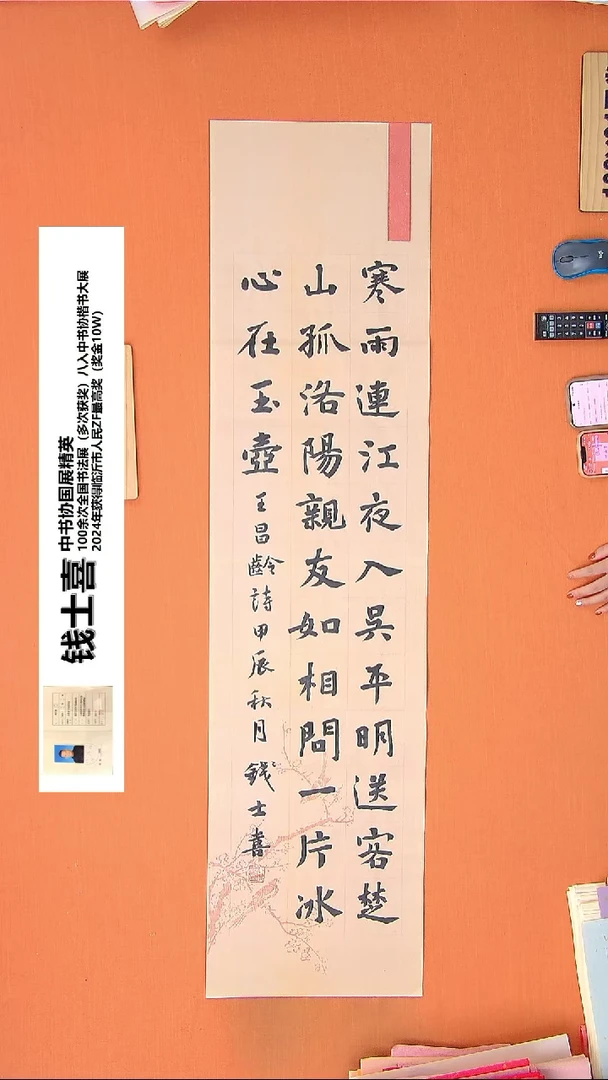 寒雨連江夜入吳平明送客楚
山孤洛陽親友如相問一片冰
心在玉壺
王昌齡詩甲辰秋月錢士喜
钱士喜
中书协国展精英
100余次全国书法展（多次获奖）八入中书协楷书大展
2024年获得临沂市人民ZF最高奖（奖金10W）